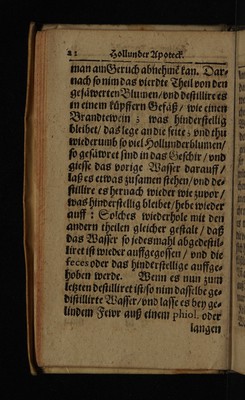 22 Hollunder Apoteck.
man am Geruch abnehmē kan. Dar-
nach so nim das vierdte Theil von den
gesäwerten Blumen / vnd destillire es
in einem küpffern Gefäß / wie einen
Brandtewein ; was hinderstellig
bleibet / das lege an die seite ; vnd thu
wiederumb so viel Hollunderblumen /
so gesäwret sind in das Geschir / vnd
giesse das vorige Wasser darauff /
laß es etwas zusamen stehen / vnd de-
stillire es hernach wieder wie zuvor /
was hinderstellig bleibet / hebe wieder
auff : Solches wiederhole mit den
andern theilen gleicher gestalt / daß
das Wasser so jedesmahl abgedestil-
liret ist wieder auffgegossen / vnd die
feces oder das hinderstellige auffge-
hoben werde. Wenn es nun zum
letzten destilliret ist / so nim dasselbe ge-
distillirte Wasser / vnd lasse es bey ge-
lindem Fewr auß einem phiol. oder
langen